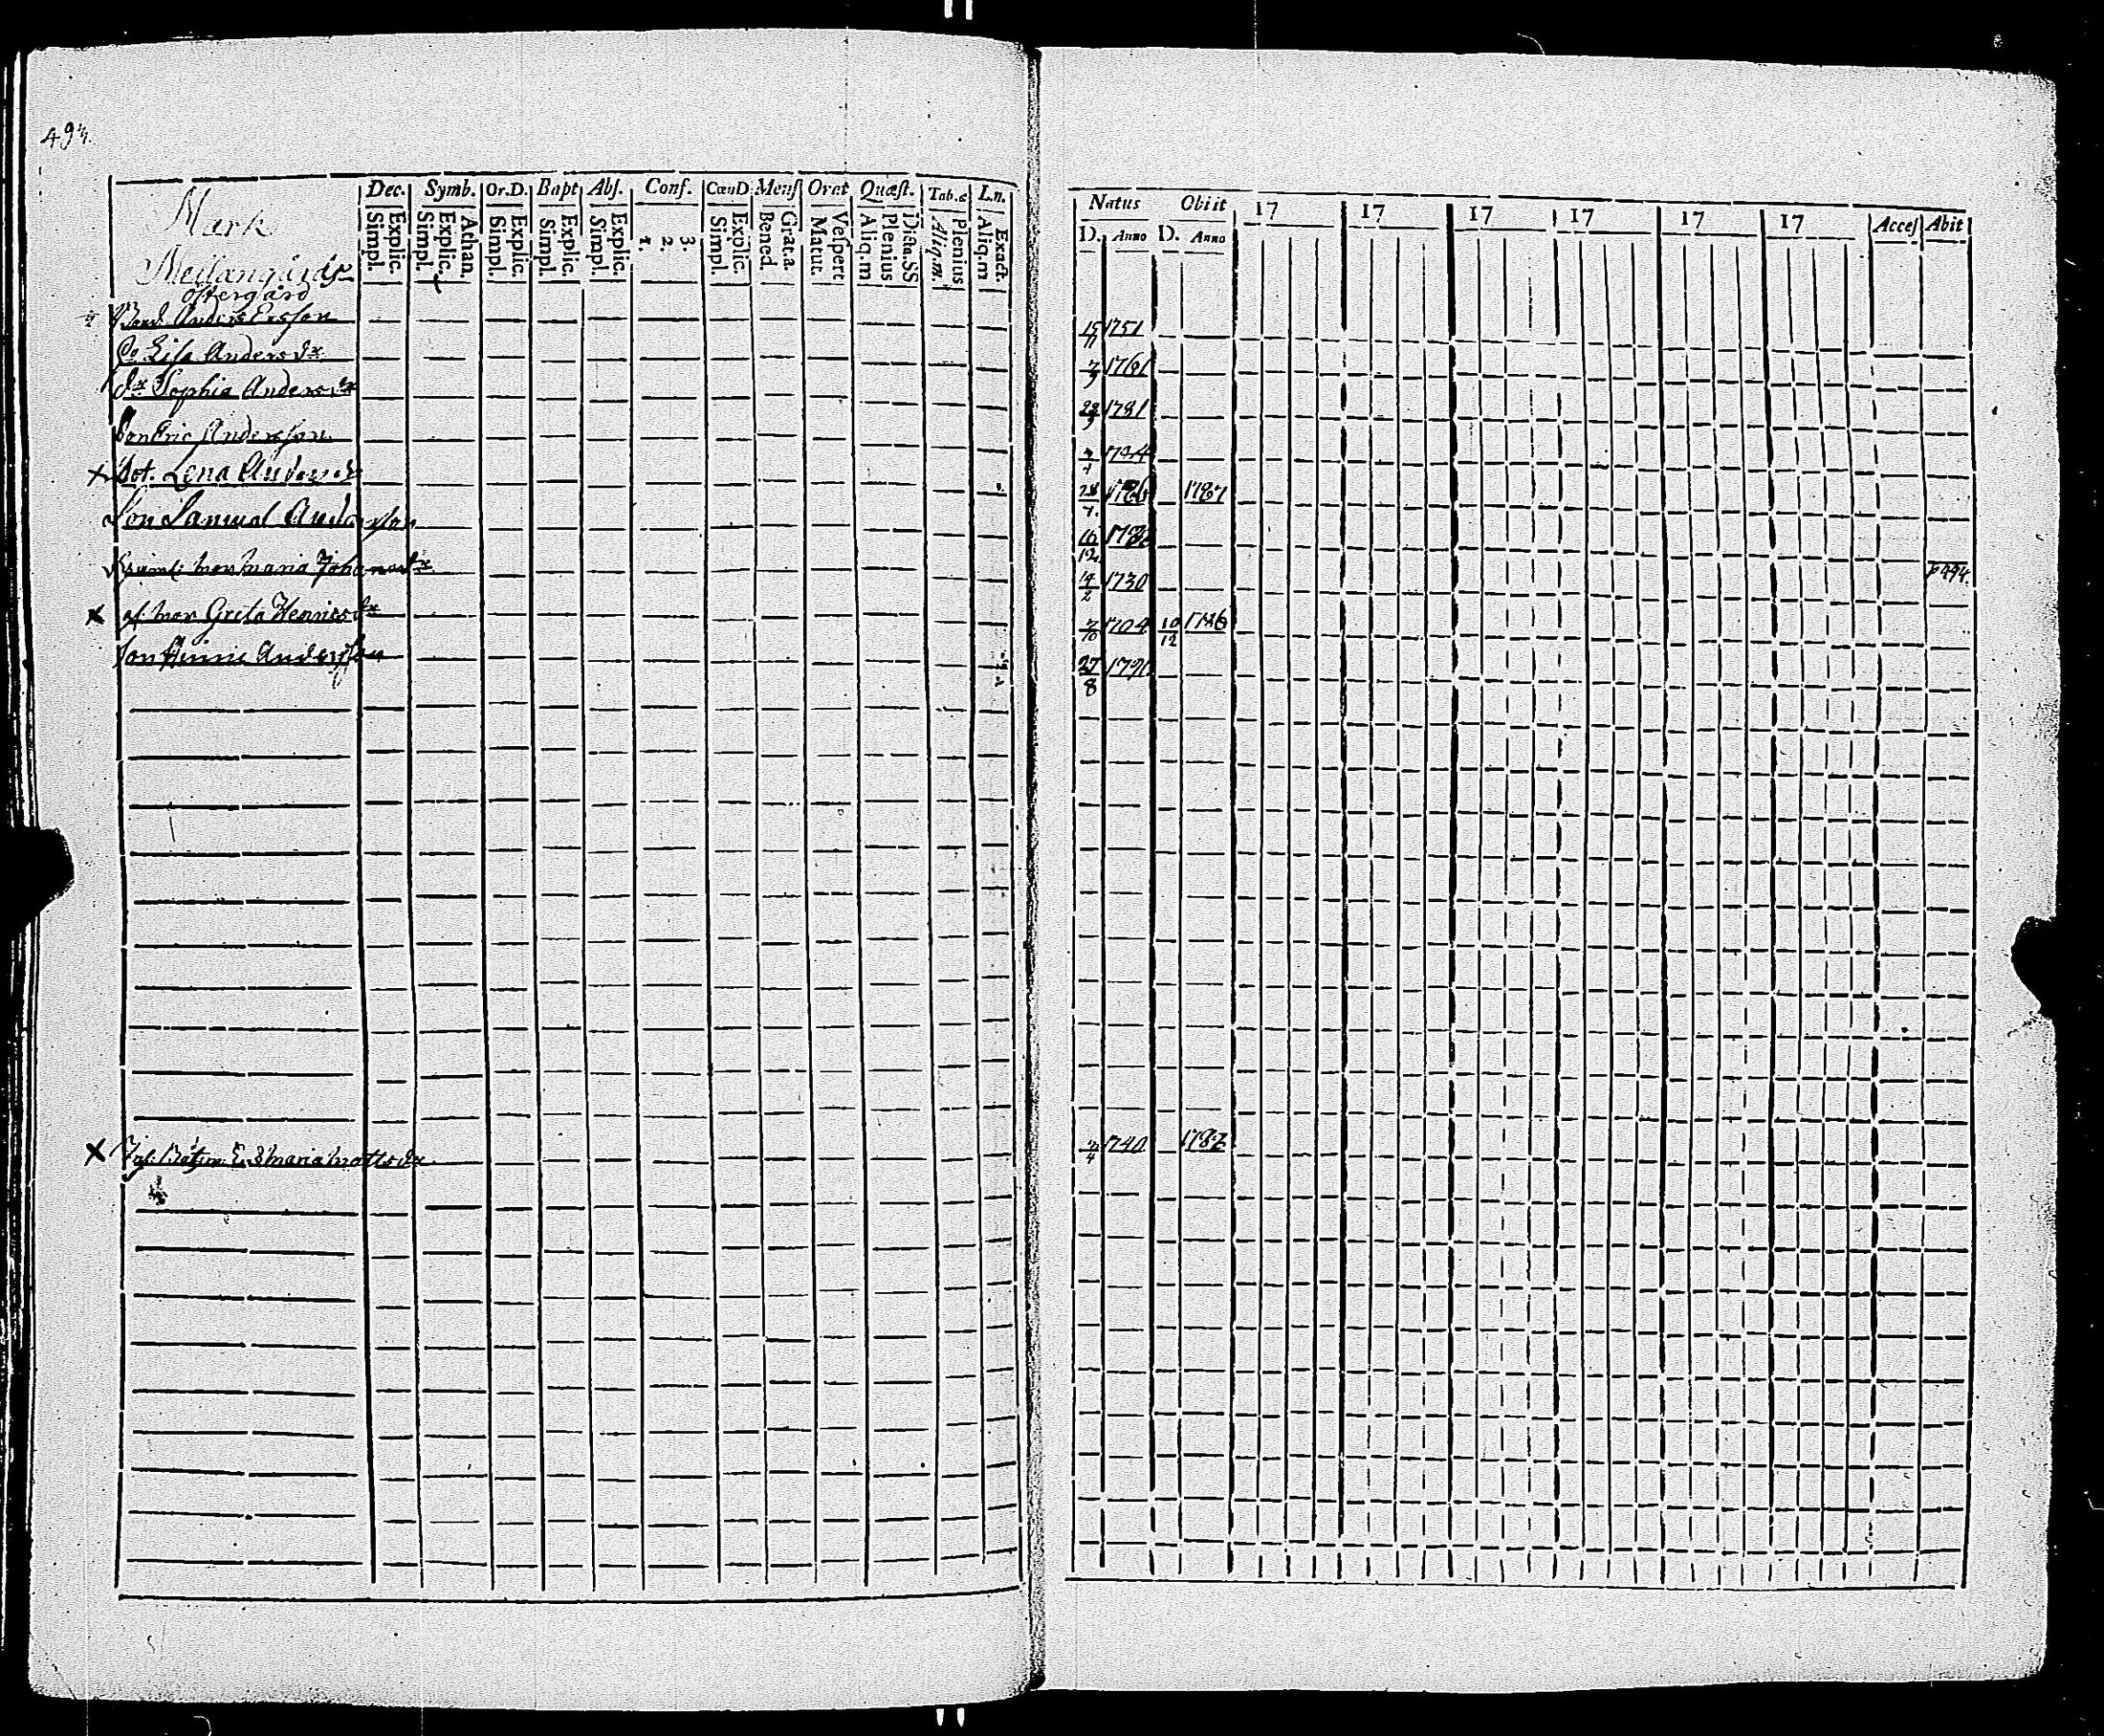 493.
Mark
Mellangårds
östergård
Dec. Symb. Or.D. Bapt Abs. Conf. CœnD Mens Orat Quæst. Tab.œ L.n.
Simpl. Explic. Simpl. Explic. Athan. Simpl. Explic. Simpl. Explic. Simpl. Explic. 1. 2. 3. Simpl. Explic. Bened. Grat.a. Matut. Vespert Aliq.m Plenius Dicta.SS Aliq.m. Plenius Aliq.m Exact.
Natus Obiit 17 17 17 17 17 17 Acces Abit
D. Anno D. Anno
Bond. Anders Ersson 15/11 1751
Lisa Anders dr 7/9 1761
dr Sophia Anders dr 22/9 1781
Son Eric Andersson
+ Dot. Lena Anders dr 1786 1787
Son Samuel Andersson 16/12
mor Maria Johans dr 14/2 1730 p 494.
x mor Greta Henrics dr 7/10 1704 10/12 1786
Son Andersson 27/8 1791
x Maria Matts dr 1740 1782